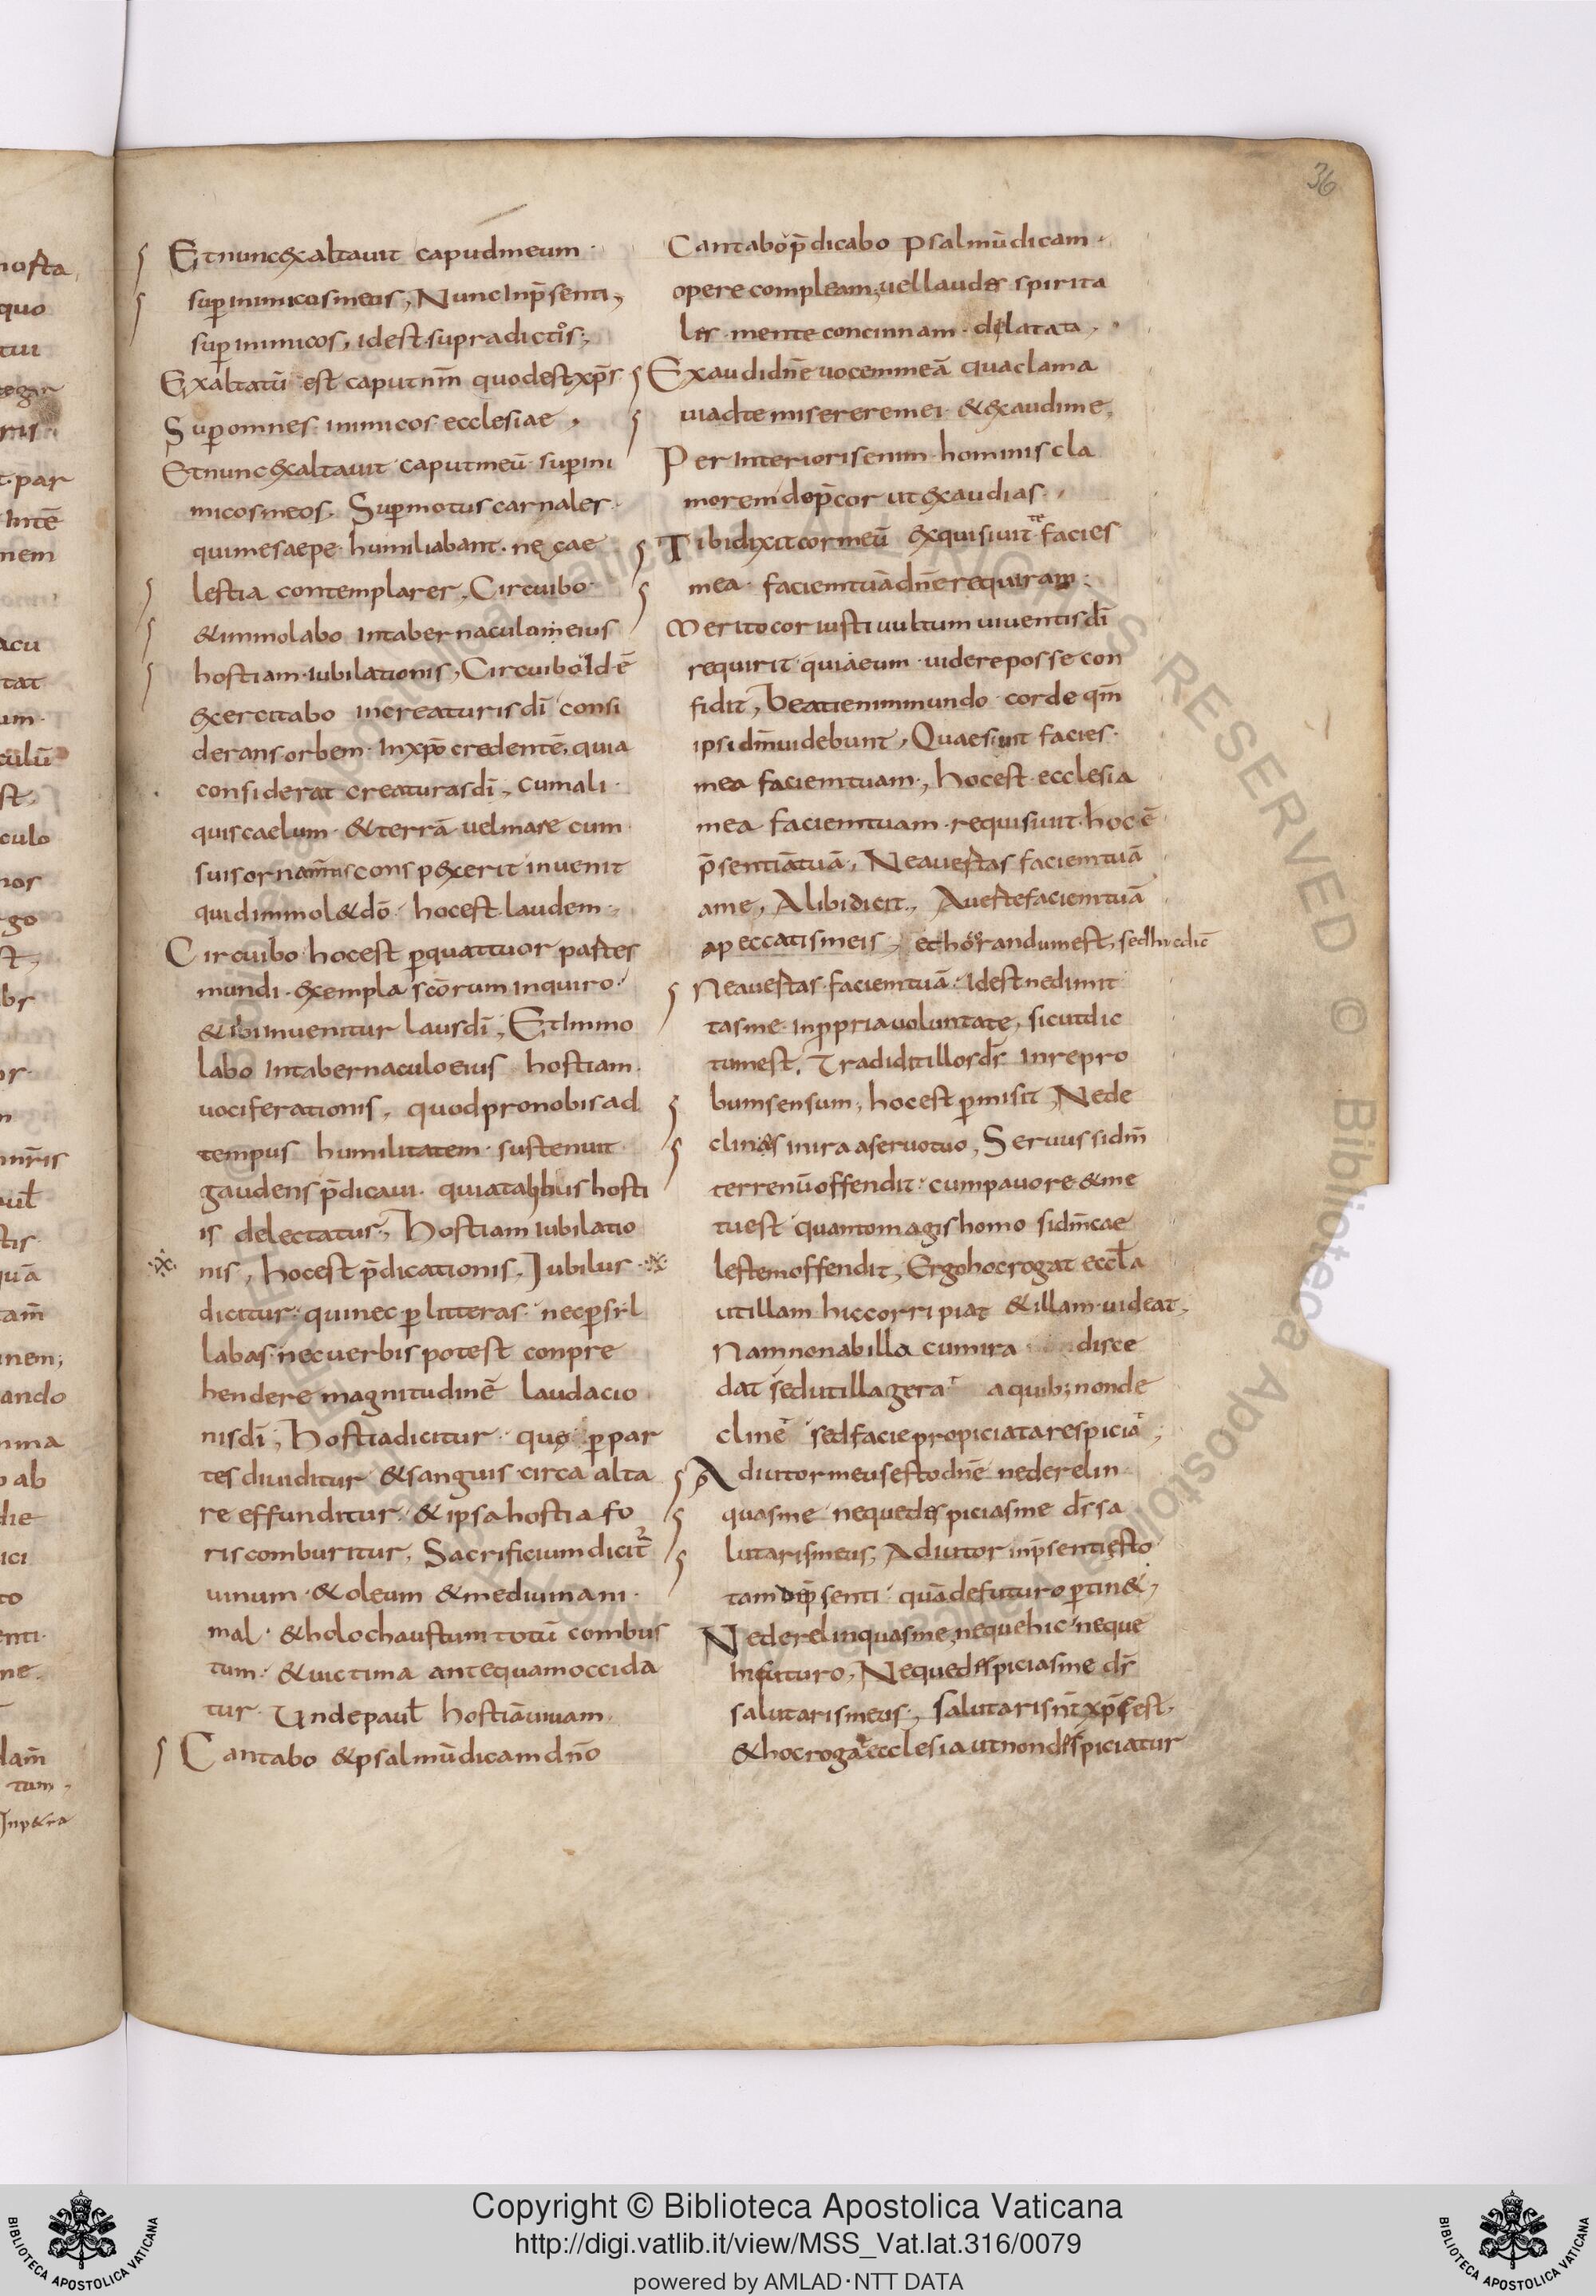 36
Et nunc exaltauit capud meum ·
sup̄ inimicos meos, Nunc inp̄senti,
sup̄ inimicos, id est supradictos;
Exaltatū est caput nr̄m quod est xp̄s ·
Sup̄ omnes inimicos ecclesiae ,
Et nunc exaltauit caput meū sup̄ ini
micos meos. Sup̄ motus carnales ·
qui me saepe humiliabant · ne cae
lestia contemplarer, Circuibo ·
& immolabo in tabernaculum eius
hostiam iubilationis, Circuibo id · ē
exercitabo in creaturis dī consi
derans orbem · In xp̄o credentē, quia
considerat creaturas dī, cum ali ·
quis caelum & terrā uel mare cum
suis ornam̄tis conspexerit inuenit
quid immol& dō · hoc est laudem ·
Circuibo hoc est p̄ quattuor partes
mundi · exempla scōrum inquiro ·
& ibi inuenitur laus dī, Et immo
labo in tabernaculo eius hostiam ·
uociferationis, quod pro nobis ad
tempus humilitatem · sustenuit
gaudens p̄dicaui · quia talibus hosti
is delectatus, Hostiam iubilatio
nis, hoc est p̄dicationis, Iubilus ·
dicitur · qui nec p̄ litteras · nec p̄ sil
labas · nec uerbis potest conpre
hendere magnitudinē laudacio
nis dī, Hostia dicitur · quę p̄ par
tes diuiditur & sanguis circa alta
re effunditur · & ipsa hostia fo
ris comburitur, Sacrificium dicit̄
uinum · & oleum & medium ani ·
mal · & holochaustum totū combus
tum · & uictima antequam occida
tur · Unde paul̄ hostiā uiuam ·
Cantabo & psalmū dicam dn̄o
Cantabo p̄dicabo psalmū dicam ·
opere compleam, uel laudes spirita
les · mente concinnam · delatata,
Exaudi dn̄e uocem meā qua clama
ui ad te miserere mei · & exaudi me,
Per interioris enim · hominis cla
morem dep̄cor ut exaudias ·
Tibi dixit cor meū exquisiuit te facies
mea · faciem tuā dn̄e requiram ·
Merito cor iusti uultum uiuentis dī
requirit quia eum uidere posse con
fidit, Beati enim mundo corde qm̄
ipsi dm̄ uidebunt, Quaesiuit facies ·
mea faciem tuam, hoc est ecclesia
mea faciem tuam requisiuit · hoc ē
p̄sentiā tuā, Ne auertas faciem tuā
a me, Alibi dicit, Auerte faciem tuā
a peccatis meis, et horandum est, sed hic dic̄
Ne auertas faciem tuā · id est ne dimit
tas me in p̄pria uoluntate, sicut dic
tum est, Tradidit illos ds̄ in repro
bum sensum, hoc est p̄misit, Ne de
clinas in ira a seruo tuo, Seruus si dn̄m
terrenū offendit · cum pauore & me
tu est quanto magis homo si dn̄m cae
lestem offendit, Ergo hoc rogat eccl̄a
ut illam hic corripiat & illam uideat,
Nam non ab illa cum ira disce
dat sed ut illa gerat a quib; non de
clinet sed facie propiciata respiciat;
Adiutor meus esto dn̄e ne derelin
quas me neque despicias me ds̄ sa
lutaris meus, Adiutor inp̄senti esto
tam dep̄senti quā de futuro p̄tin&,
Ne derelinquas me, neque hic neque
in futuro, Neque despicias me ds̄
salutaris meus, Salutaris nr̄ xp̄s est,
& hoc rogat ecclesia ut non despiciatur
Copyright © Biblioteca Apostolica Vaticana
http://digi.vatlib.it/view/MSS_Vat.lat.316/0079
powered by AMLAD·NTT DATA